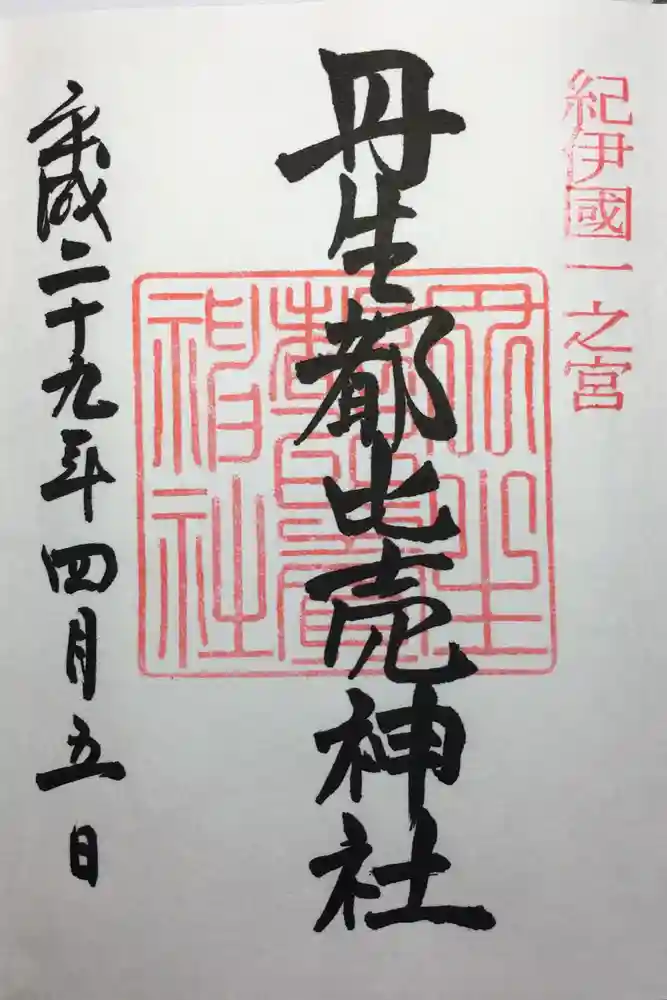 紀伊國一之宮
丹生都比売神社
平成二十九年四月五日